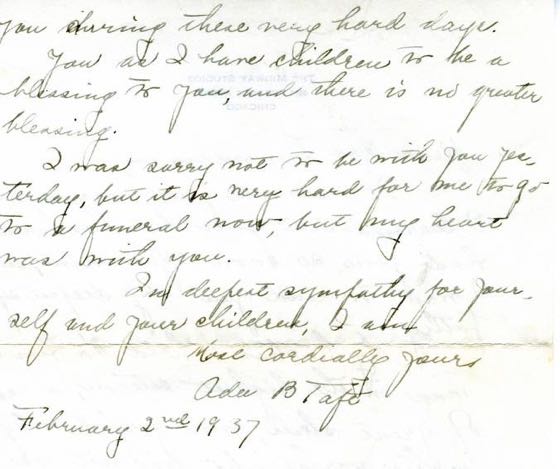 you during these very hard days.
You as I have children to be a
blessing to you, and there is no greater
blessing.
I was sorry not to be with you yes-
terday, but it is very hard for me to go
to a funeral now, but my heart
was with you.
In deepest sympathy for your-
self and your children, I am
Most cordially yours
Ada B Taft
February 2nd 1937